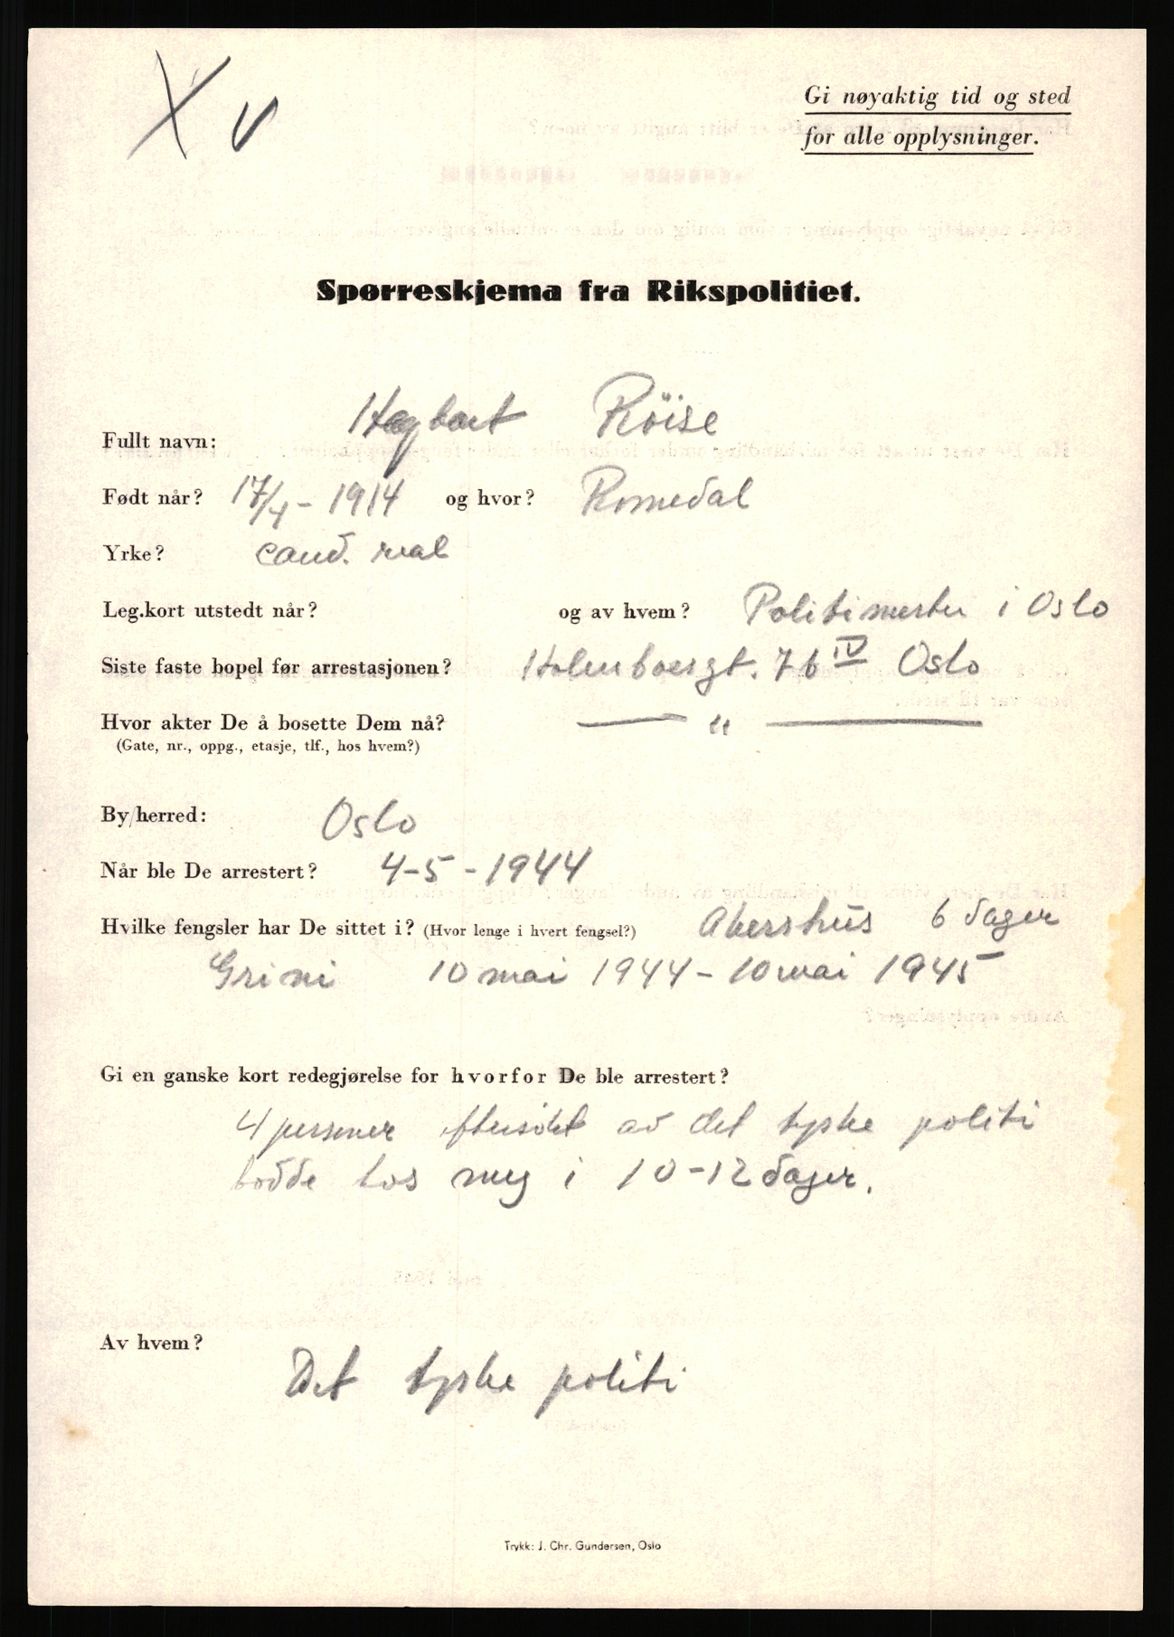 X v
Gi nøyaktig tid og sted
for alle opplysninger.
Spørreskjema fra Rikspolitiet.
Fullt navn: Hagbart Röise
Født når? 17/4 - 1914 og hvor? Romedal
Yrke? cand. real
Leg.kort utstedt når? og av hvem? Politimester i Oslo
Siste faste bopel før arrestasjonen? Holmboesgt. 7b IV Oslo
Hvor akter De å bosette Dem nå? — " —
(Gate, nr., oppg., etasje, tlf., hos hvem?)
By/herred: Oslo
Når ble De arrestert? 4-5-1944
Hvilke fengsler har De sittet i? (Hvor lenge i hvert fengsel?) Akershus 6 dager
Grini 10 mai 1944 - 10 mai 1945
Gi en ganske kort redegjørelse for hvorfor De ble arrestert?
4 personer eftersökt av det tyske politi
bodde hos meg i 10-12 dager.
Av hvem?
Det tyske politi
Trykk: J. Chr. Gundersen, Oslo